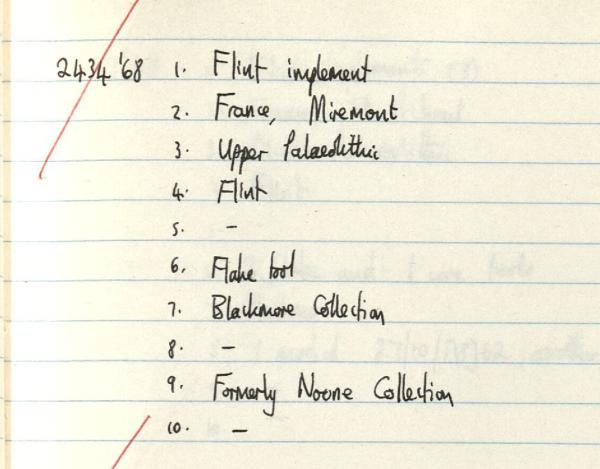 2434 '68 1. Flint implement
2. France, Miremont
3. Upper Palaeolithic
4. Flint
5. –
6. Flake tool
7. Blackmore Collection
8. –
9. Formerly Noone Collection
10. –